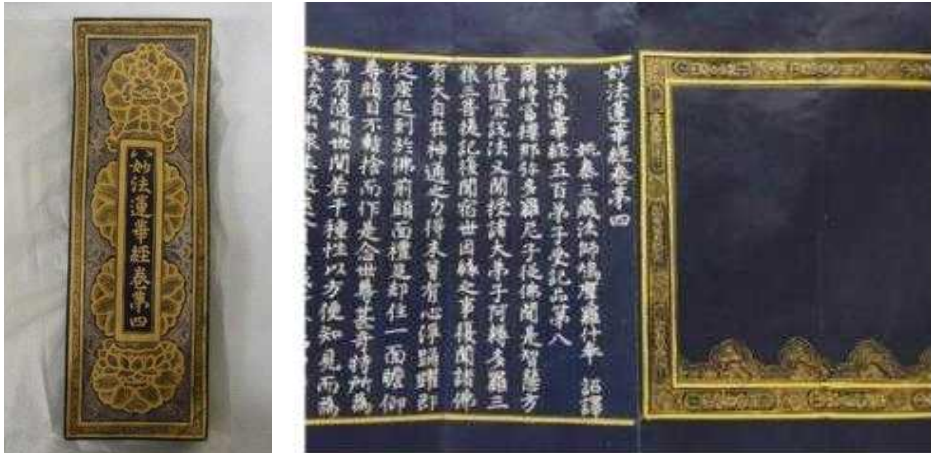 妙法蓮華經卷第四
妙法蓮華經卷第四
姚秦三藏法師鳩摩羅什奉 詔譯
妙法蓮華經五百弟子受記品第八
爾時富樓那弥多羅尼子從佛聞是智慧方
便隨宜說法又聞授諸大弟子阿耨多羅三
藐三菩提記復聞宿世因緣之事復聞諸佛
有大自在神通之力得未曾有心淨踊躍即
從座起到於佛前頭面禮足却住一面瞻仰
尊顏目不暫捨而作是念世尊甚奇特所為
希有隨順世間若干種性以方便知見而為